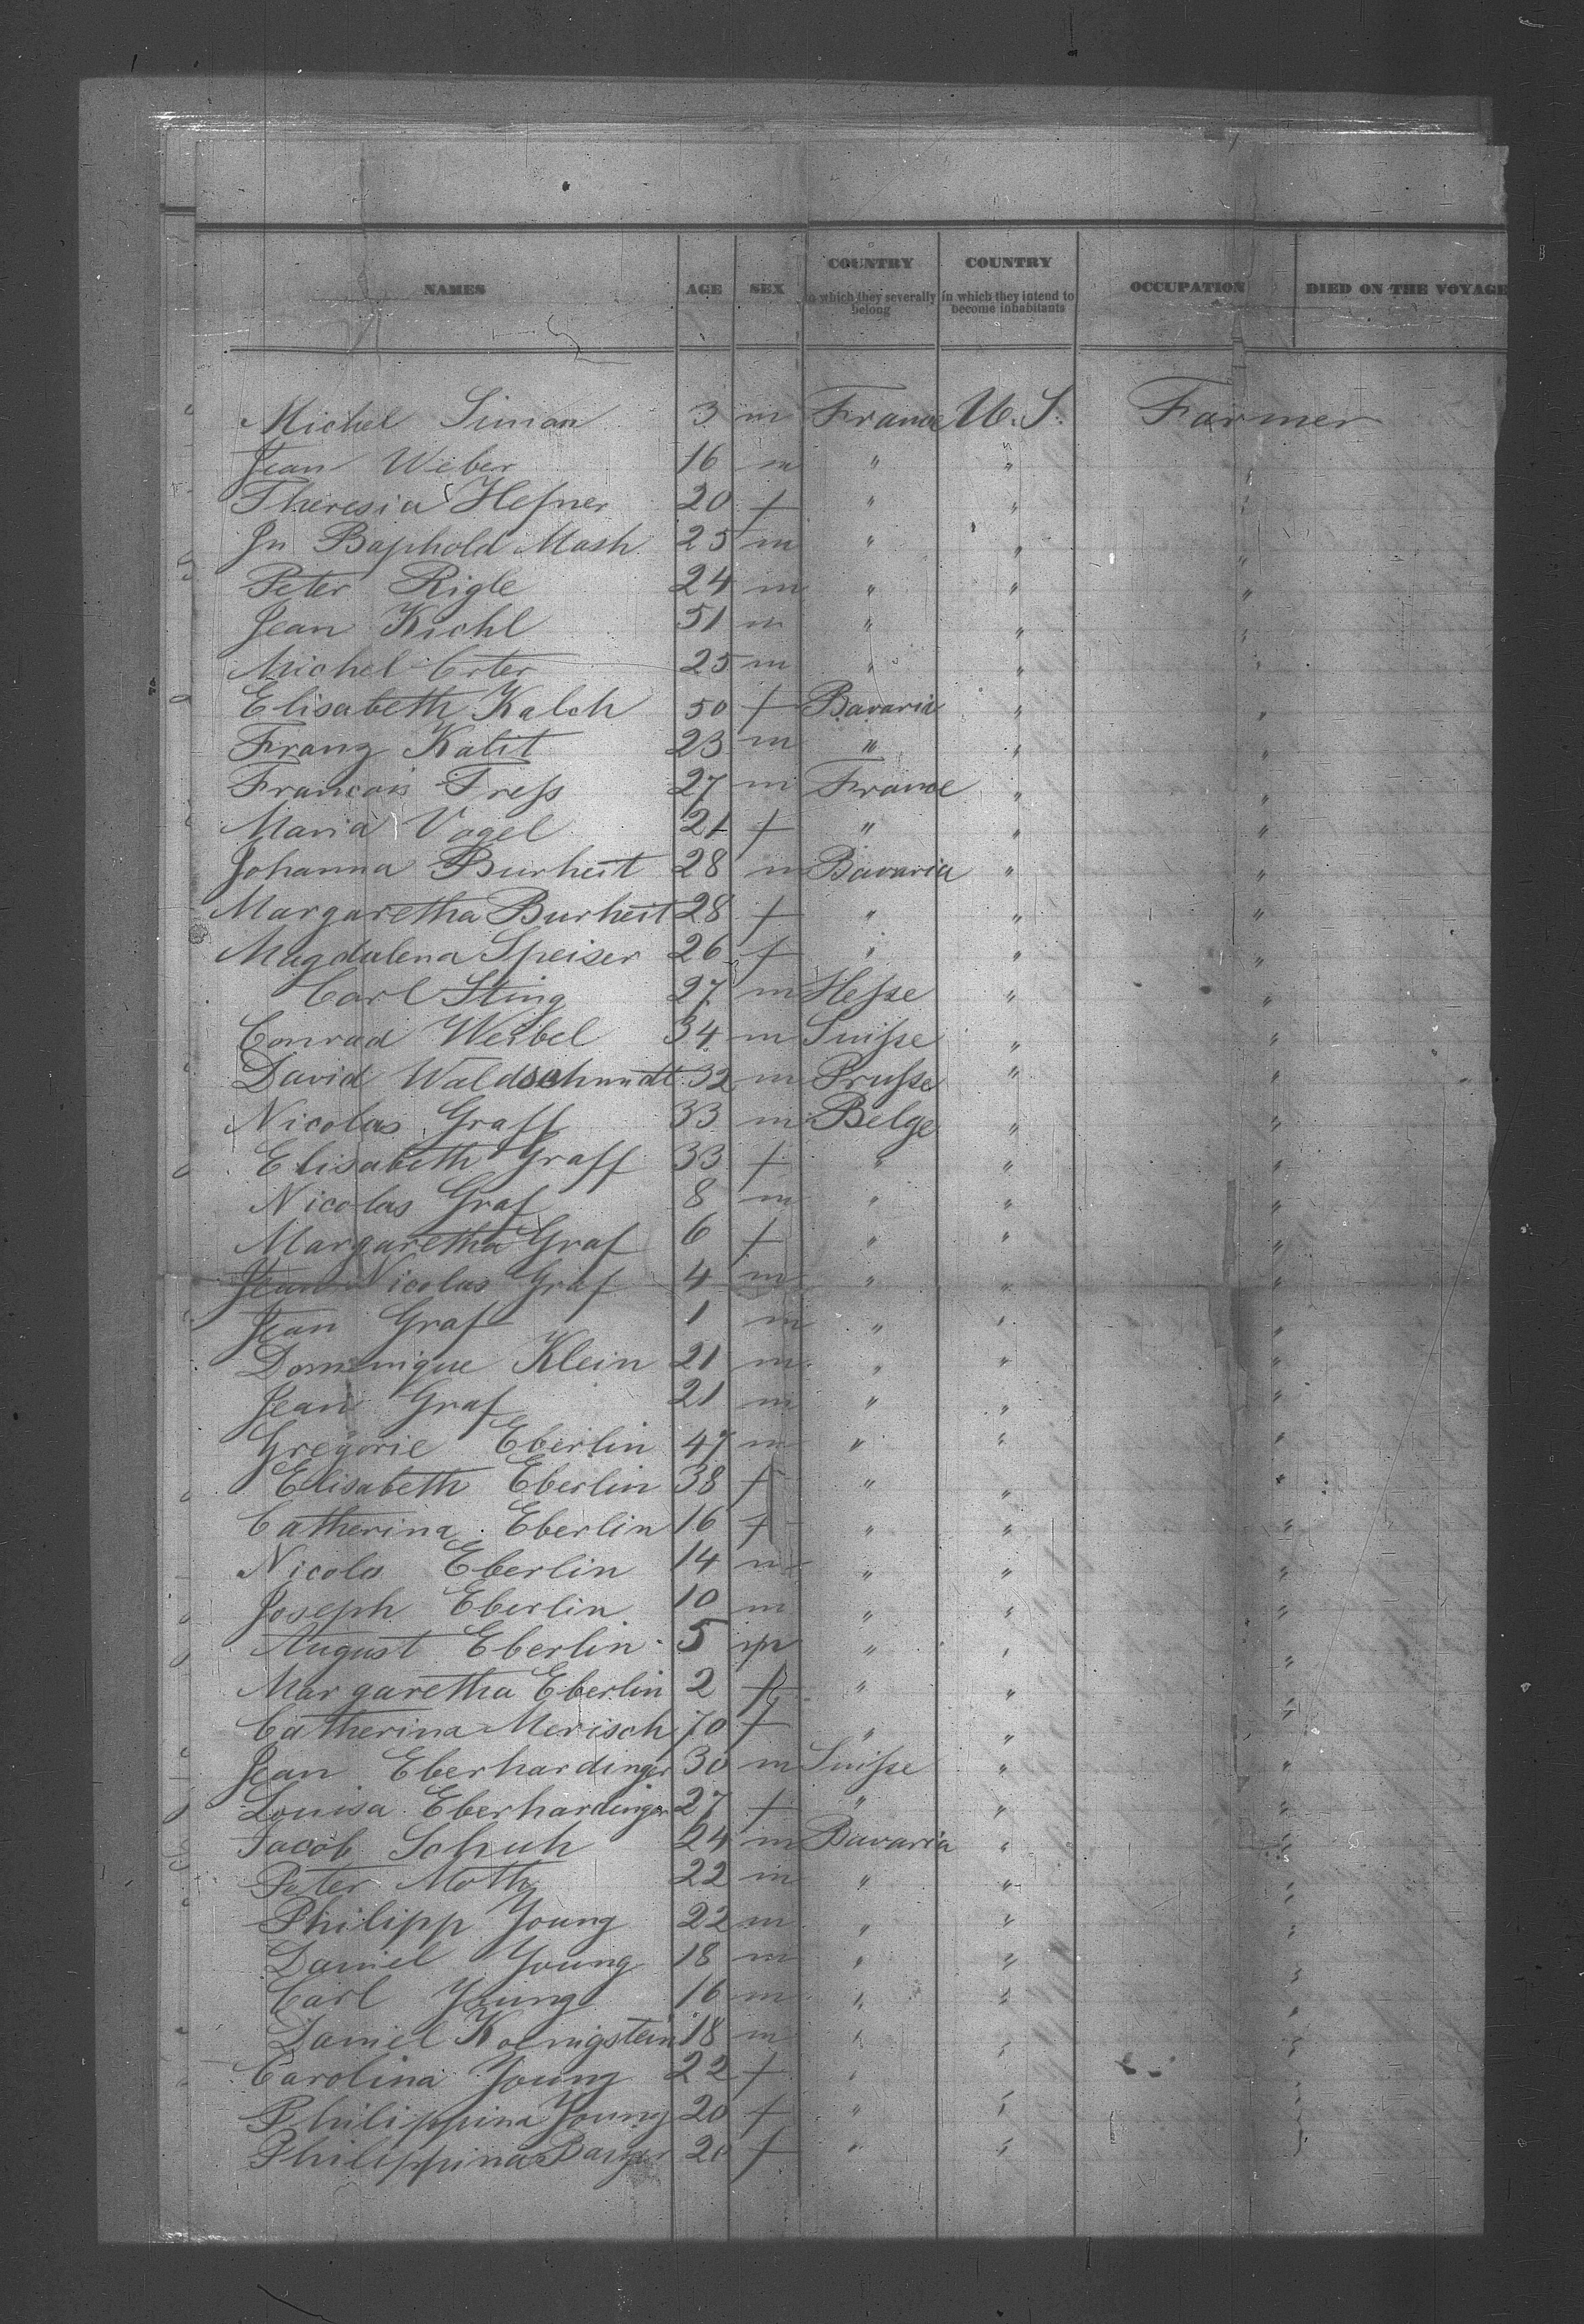 NAMES AGE SEX COUNTRY in which they severally belong COUNTRY in which they intend to become inhabitants OCCUPATION DIED ON THE VOYAGE
Michel Simon 3 m France U.S. Farmer
Jean Weber 16 m " " "
Theresia Hefner 20 f " " "
Jn Baphold Mash 25 m " " "
Peter Rigle 24 m " " "
Jean Kichl 51 m " " "
Michel Erter 25 m " " "
Elisabeth Kalch 50 f Bavaria " "
Franz Kalit 23 m " " "
Francois Tress 27 m France " "
Maria Vogel 21 f " " "
Johanna Burheit 28 m Bavaria " "
Margaretha Burheit 28 f " " "
Magdalena Speiser 26 f " " "
Carl Sting 27 m Hesse " "
Conrad Weibel 34 m Suisse " "
David Waldschmidt 32 m Prusse " "
Nicolas Graff 33 m Belge " "
Elisabeth Graff 33 f " " "
Nicolas Graf 8 m " " "
Margaretha Graf 6 f " " "
Jean Nicolas Graf 4 m " " "
Jean Graf 1 m " " "
Dominique Klein 21 m " " "
Jean Graf 21 m " " "
Gregorie Eberlin 47 m " " "
Elisabeth Eberlin 38 f " " "
Catherina Eberlin 16 f " " "
Nicolas Eberlin 14 m " " "
Joseph Eberlin 10 m " " "
August Eberlin 5 m " " "
Margaretha Eberlin 2 f " " "
Catherina Merisch 70 f " " "
Jean Eberhardinger 30 m Suisse " "
Louisa Eberhardinger 27 f " " "
Jacob Schuh 24 m Bavaria " "
Peter Moth 22 m " " "
Philipp Young 22 m " " "
Daniel Young 18 m " " "
Carl Young 16 m " " "
Daniel Koenigstein 18 m " " "
Carolina Young 22 f " " "
Philippina Young 20 f " " "
Philippina 20 f " " "